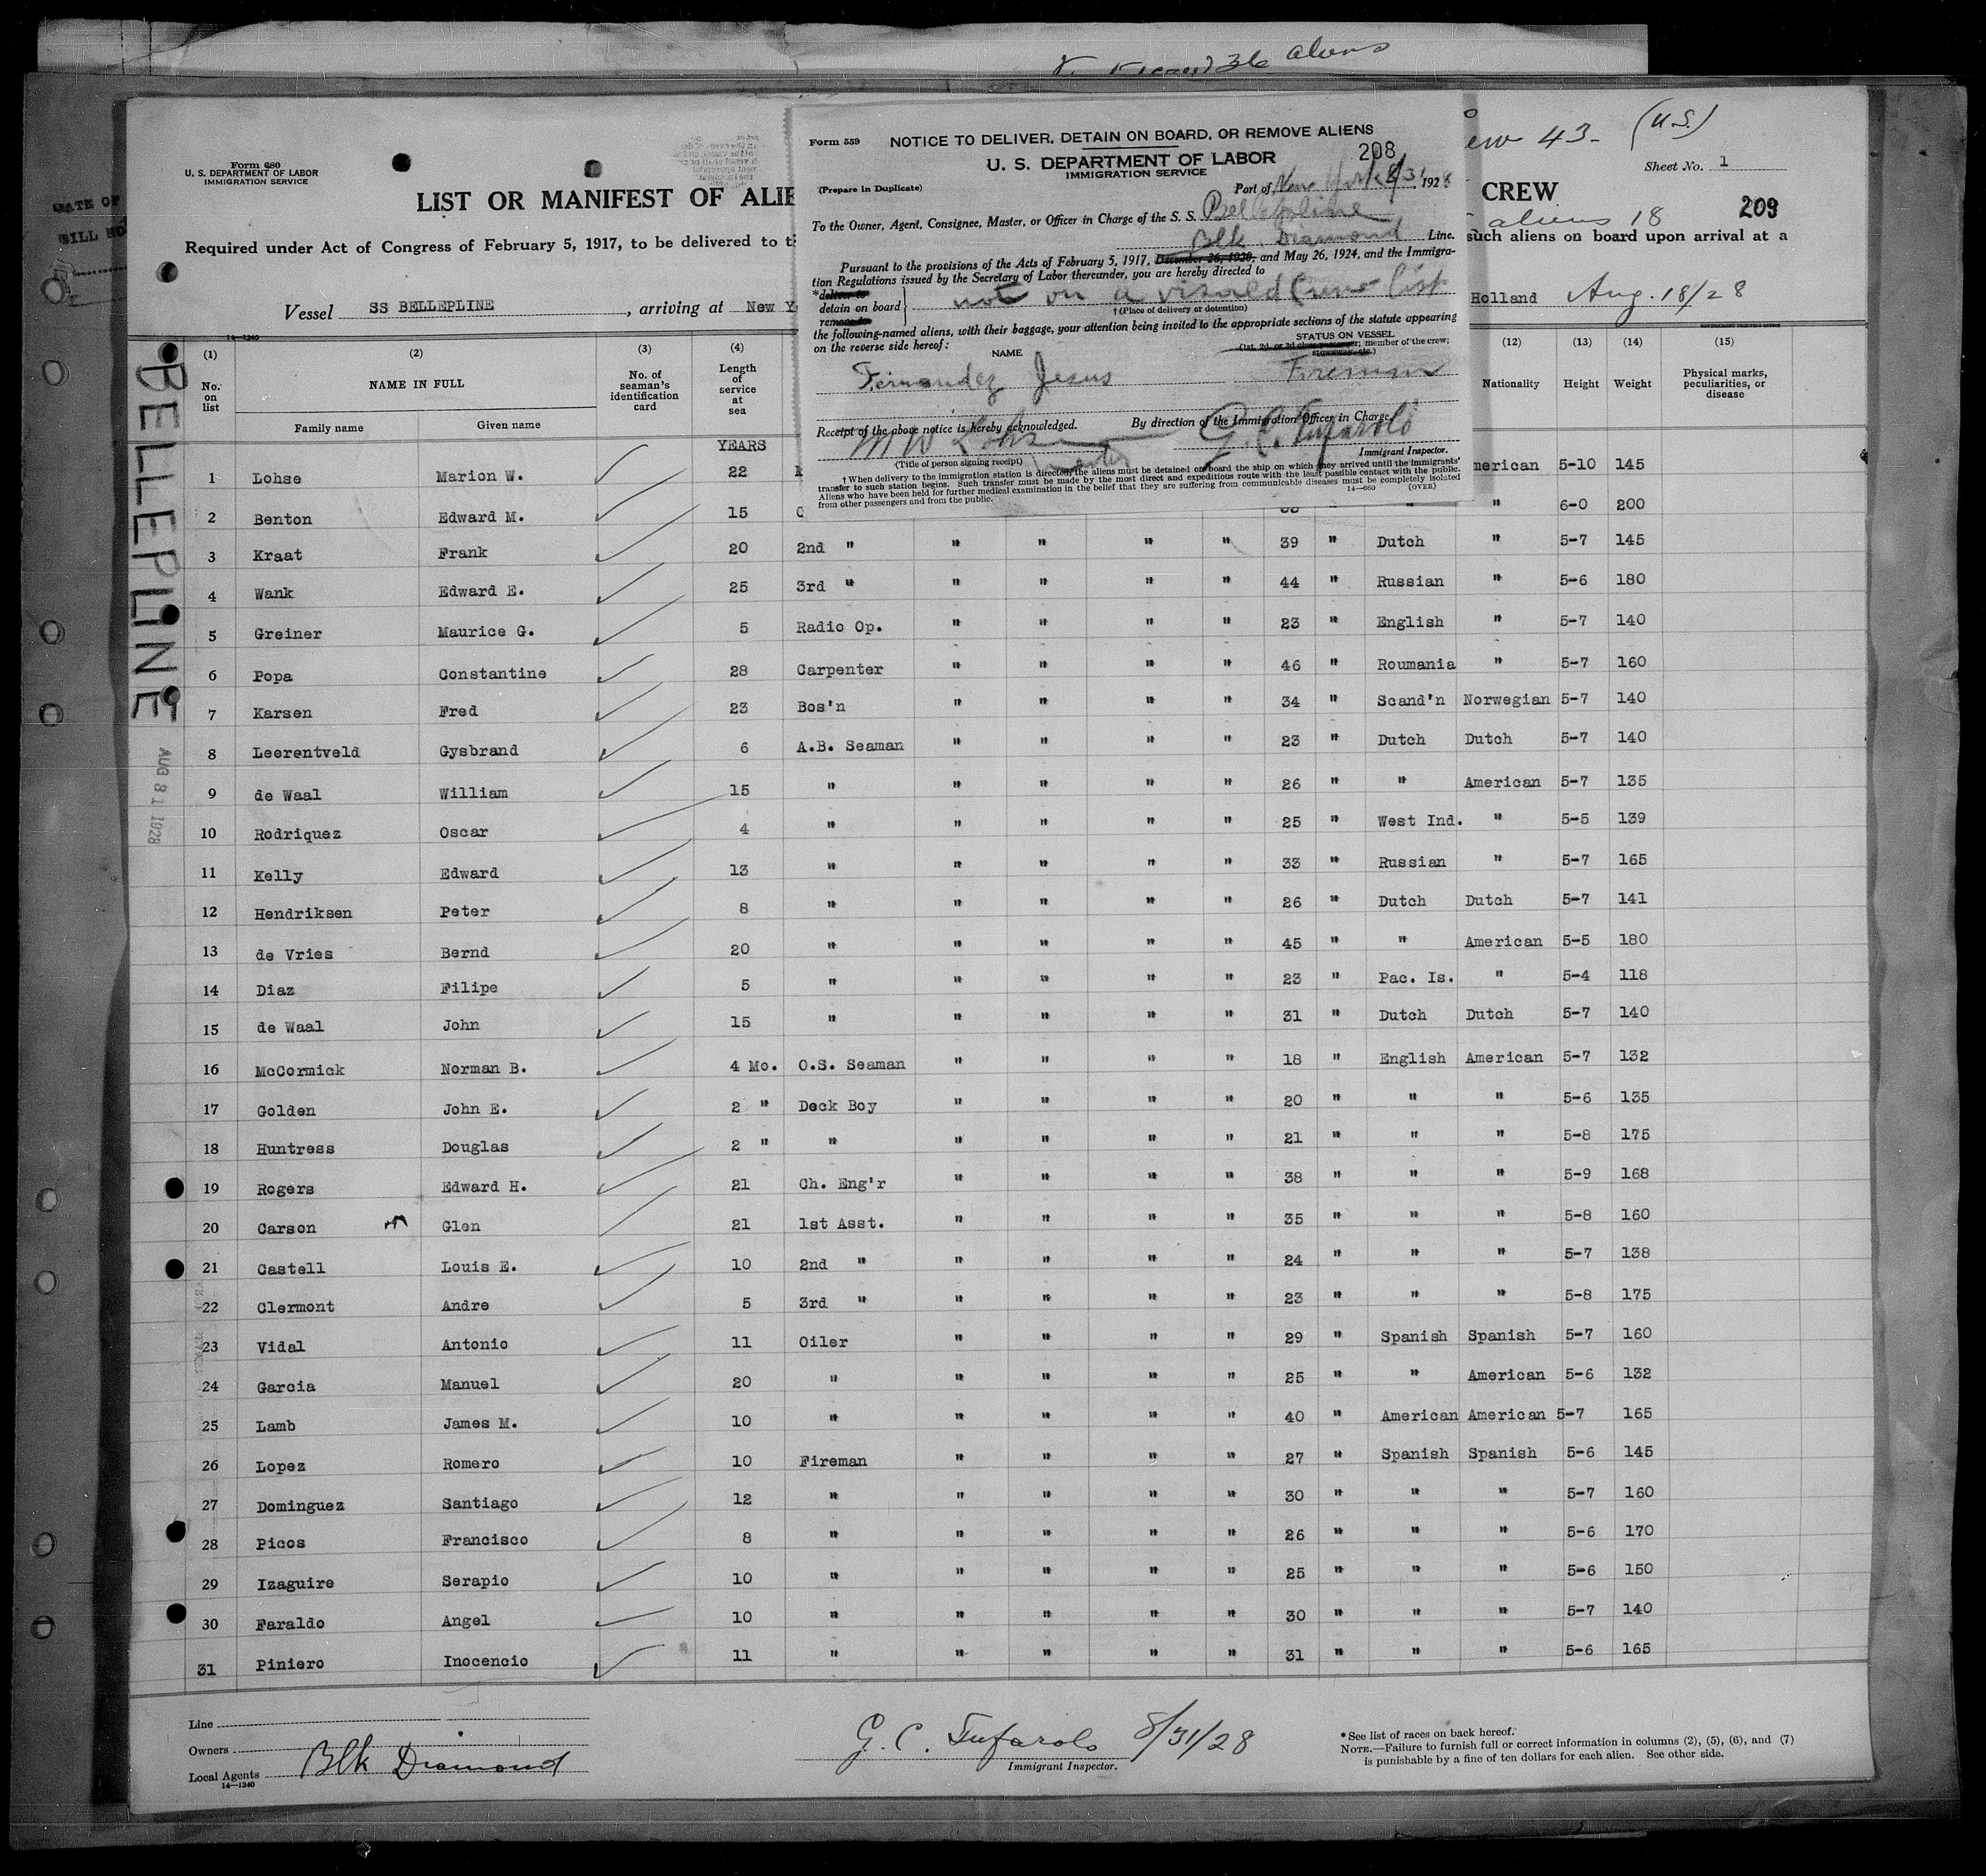 aliens
Form 680
U. S. DEPARTMENT OF LABOR
IMMIGRATION SERVICE
LIST OR MANIFEST OF ALIE
Required under Act of Congress of February 5, 1917, to be delivered to t
Vessel SS BELLEPLINE, arriving at New Y
Form 559
NOTICE TO DELIVER, DETAIN ON BOARD, OR REMOVE ALIENS
U. S. DEPARTMENT OF LABOR
IMMIGRATION SERVICE
208
(Prepare in Duplicate)
Port of New York 8/31, 1928
To the Owner, Agent, Consignee, Master, or Officer in Charge of the S. S. Bellepline
Blk Diamond Line.
Pursuant to the provisions of the Acts of February 5, 1917, December 26, 1920, and May 26, 1924, and the Immigra-
tion Regulations issued by the Secretary of Labor thereunder, you are hereby directed to
*deliver to
detain on board
remove to
not on a visaed Crew list
† (Place of delivery or detention)
the following-named aliens, with their baggage, your attention being invited to the appropriate sections of the statute appearing
on the reverse side hereof:
NAME
STATUS ON VESSEL
(1st, 2d, or 3d class passenger; member of the crew;
stowaway, etc.)
Fernandez Jesus Fireman
Receipt of the above notice is hereby acknowledged. By direction of the Immigration Officer in Charge
M W Lohse G. C. Tufarolo
Master
(Title of person signing receipt)
Immigrant Inspector.
† When delivery to the immigration station is directed, the aliens must be detained on board the ship on which they arrived until the immigrants'
transfer to such station begins. Such transfer must be made by the most direct and expeditious route with the least possible contact with the public.
Aliens who have been held for further medical examination in the belief that they are suffering from communicable diseases must be completely isolated
from other passengers and from the public.
14—660 (OVER)
ew 43- (U.S.)
Sheet No. 1
CREW
aliens 18
209
such aliens on board upon arrival at a
Holland Aug. 18/28
14—1240
BELLEPLINE
AUG 31 1928
(1) (2) (3) (4) (12) (13) (14) (15)
No. on list
NAME IN FULL
Family name Given name
No. of seaman's identification card
Length of service at sea
Nationality Height Weight
Physical marks, peculiarities, or disease
YEARS
1 Lohse Marion W. 22 merican 5-10 145
2 Benton Edward M. 15 " " 6-0 200
3 Kraat Frank 20 2nd " " " " " 39 " Dutch " 5-7 145
4 Wank Edward E. 25 3rd " " " " " 44 " Russian " 5-6 180
5 Greiner Maurice G. 5 Radio Op. " " " " 23 " English " 5-7 140
6 Popa Constantine 28 Carpenter " " " " 46 " Roumania " 5-7 160
7 Karsen Fred 23 Bos'n " " " " 34 " Scand'n Norwegian 5-7 140
8 Leerentveld Gysbrand 6 A.B. Seaman " " " " 23 " Dutch Dutch 5-7 140
9 de Waal William 15 " " " " " 26 " " American 5-7 135
10 Rodriquez Oscar 4 " " " " " 25 " West Ind. " 5-5 139
11 Kelly Edward 13 " " " " " 33 " Russian " 5-7 165
12 Hendriksen Peter 8 " " " " " 26 " Dutch Dutch 5-7 141
13 de Vries Bernd 20 " " " " " 45 " " American 5-5 180
14 Diaz Filipe 5 " " " " " 23 " Pac. Is. " 5-4 118
15 de Waal John 15 " " " " " 31 " Dutch Dutch 5-7 140
16 McCormick Norman B. 4 Mo. O.S. Seaman " " " " 18 " English American 5-7 132
17 Golden John E. 2 " Deck Boy " " " " 20 " " " 5-6 135
18 Huntress Douglas 2 " " " " " " 21 " " " 5-8 175
19 Rogers Edward H. 21 Ch. Eng'r " " " " 38 " " " 5-9 168
20 Carson Glen 21 1st Asst. " " " " 35 " " " 5-8 160
21 Castell Louis E. 10 2nd " " " " " 24 " " " 5-7 138
22 Clermont Andre 5 3rd " " " " " 23 " " " 5-8 175
23 Vidal Antonio 11 Oiler " " " " 29 " Spanish Spanish 5-7 160
24 Garcia Manuel 20 " " " " " 25 " " American 5-6 132
25 Lamb James M. 10 " " " " " 40 " American American 5-7 165
26 Lopez Romero 10 Fireman " " " " 27 " Spanish Spanish 5-6 145
27 Dominguez Santiago 12 " " " " " 30 " " " 5-7 160
28 Picos Francisco 8 " " " " " 26 " " " 5-6 170
29 Izaguire Serapio 10 " " " " " 25 " " " 5-6 150
30 Faraldo Angel 10 " " " " " 30 " " " 5-7 140
31 Piniero Inocencio 11 " " " " " 31 " " " 5-6 165
Line
Owners
Local Agents Blk Diamond
14—1240
G. C. Tufarolo 8/31/28
Immigrant Inspector.
* See list of races on back hereof.
NOTE.—Failure to furnish full or correct information in columns (2), (5), (6), and (7)
is punishable by a fine of ten dollars for each alien. See other side.